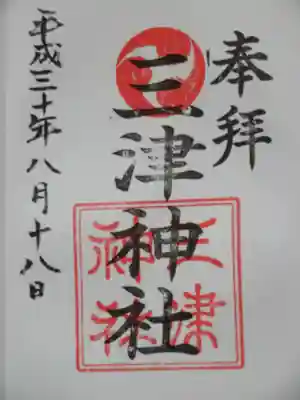 奉拝
三津神社
三津神社
平成三十年八月十八日